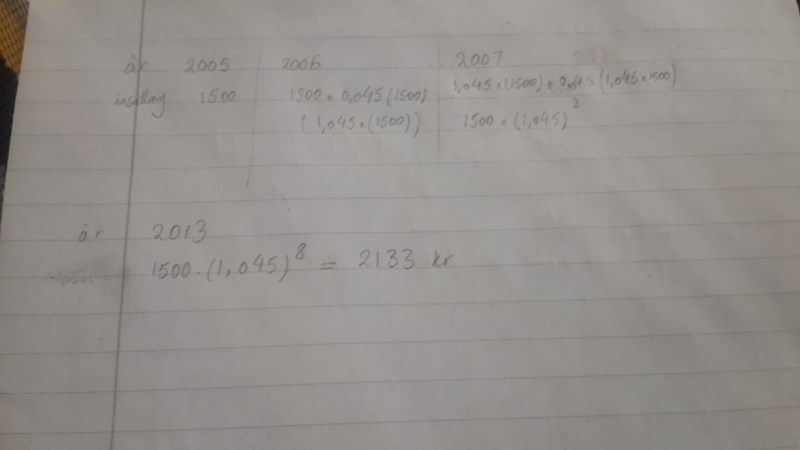 år 2005 2006 2007
insättning 1500 1500 + 0,045 (1500) 1,045 × (1500) + 0,045 (1,045 × 1500)
(1,045 × (1500)) 1500 × (1,045)²
år 2013
1500 · (1,045)⁸ = 2133 kr